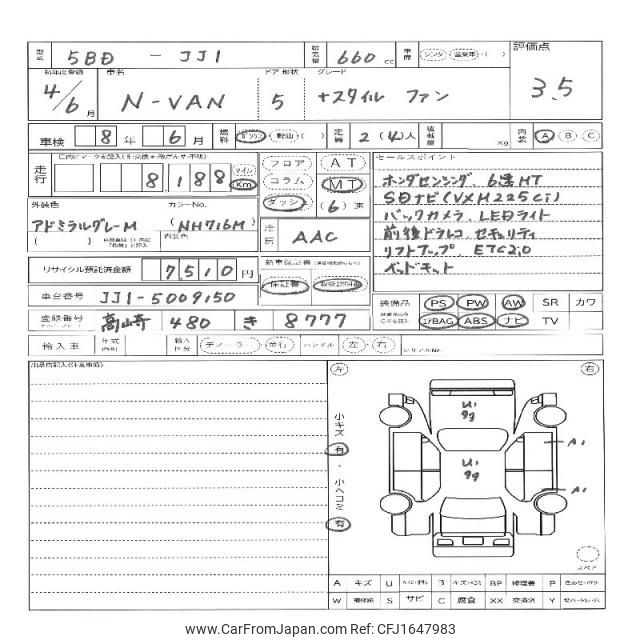 型式 5BD - JJ1 排気量 660 cc 車歴 レンタ 営業車・( ) 評価点
初年度登録 車名 ドア 形状 グレード
4/6 月 N-VAN 5 +スタイル ファン 3.5
車検 8年 6月 燃料 ガソリン 軽油・( ) 定員 2(4)人 積載量 Kg 内装 A B C
走行 8,188 マイル Km
フロア AT
コラム MT
ダッシュ (6)速
セールスポイント
ホンダセンシング、6速MT
SDナビ(VXM225Ci)
バックカメラ、LEDライト
前後ドラレコ、セキュリティ
リフトアップ、ETC2.0
ベッドキット
外装色 カラーNo.
アドミラルグレーM (NH716M)
冷房 AAC
リサイクル預託済金額 7510円
新車保証書
保証書 取扱説明書
車台番号 JJ1-5009150
装備品 PS PW AW SR カワ
エアBAG ABS ナビ TV
登録番号 480 き 8777
輸入車 年式 輸入区分 ディーラー・並行 ハンドル 左・右
左 右
小キズ 有・小ヘコミ 有
U1
U1
A1
A1
スペア
A キズ U BP 修理箇 P
W S サビ C 腐食 XX 交換済 Y
www.CarFromJapan.com - CFJ1647983